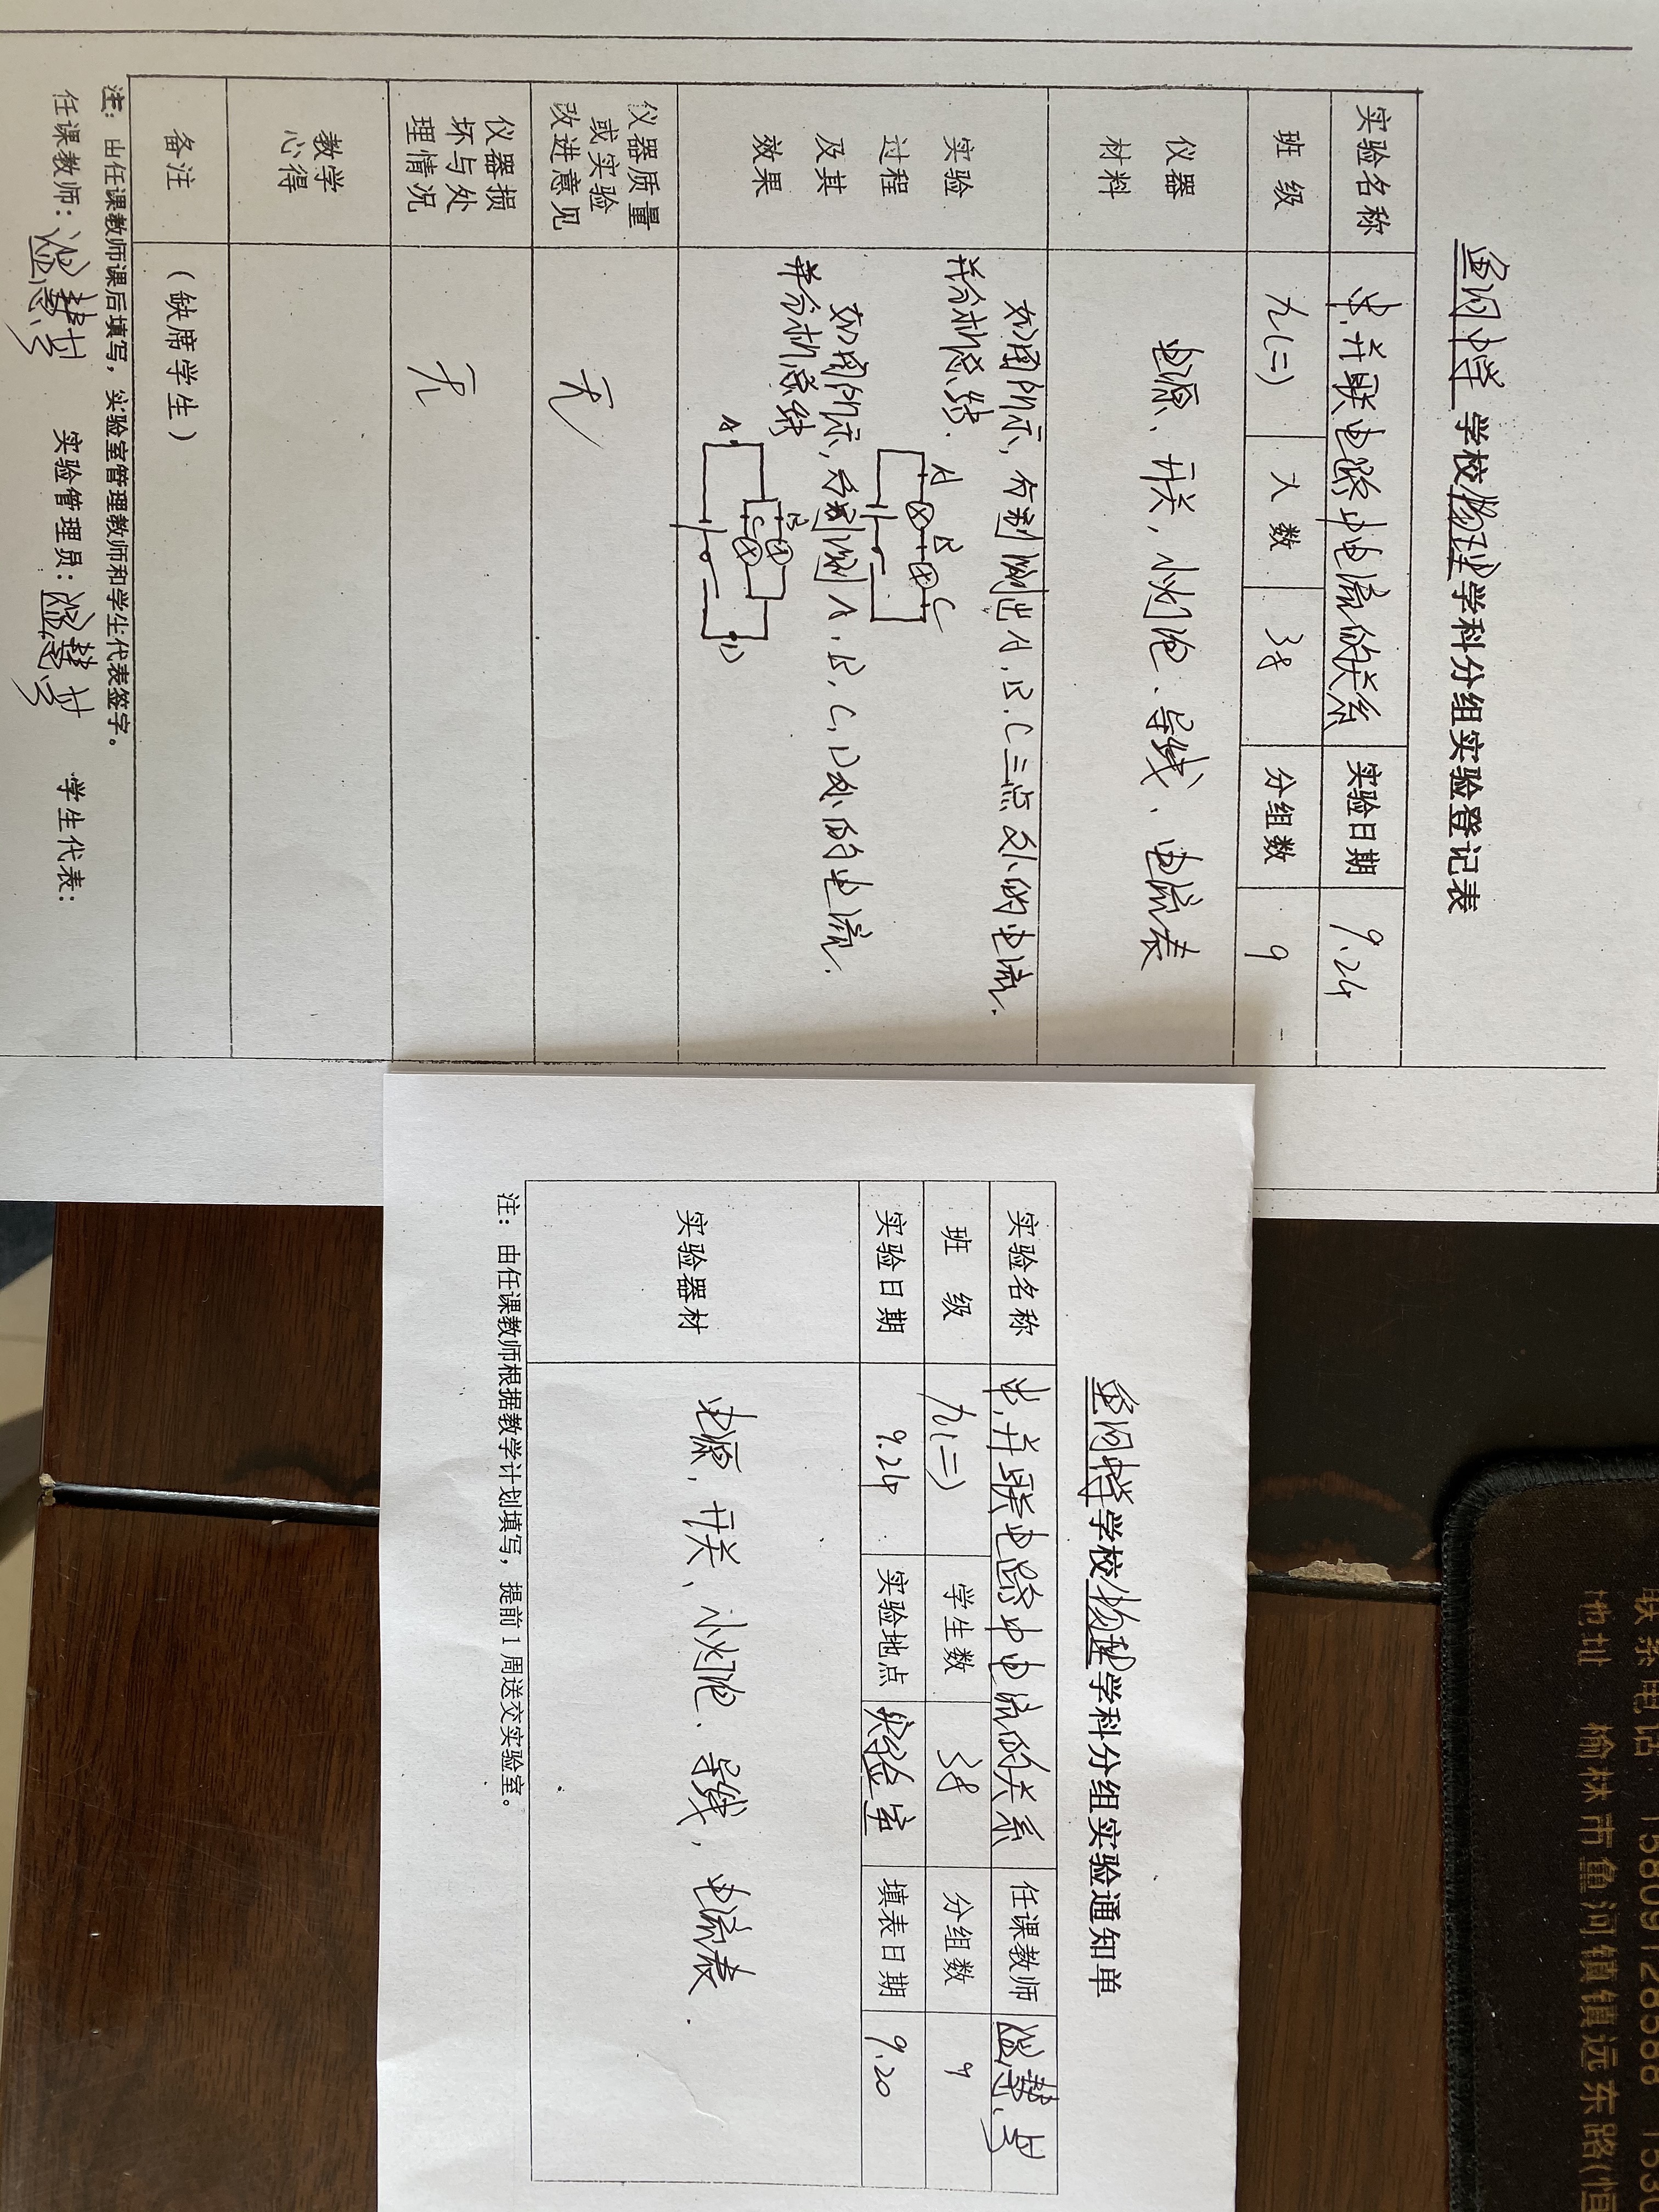 鱼河中学学校物理学科分组实验登记表
实验名称 串、并联电路中电流的关系 实验日期 9.24
班 级 九(二) 人 数 38 分组数 9
仪器材料 电源、开关，小灯泡、导线、电流表
实验过程及其效果
如图所示，分别测出A、B、C三点处的电流，
并分析总结.
A B C
如图所示，分别测A、B、C、D处的电流，
并分析总结
A B C D
仪器质量或实验改进意见 无
仪器损坏与处理情况 无
教学心得
备注 (缺席学生)
注：由任课教师课后填写，实验室管理教师和学生代表签字。
任课教师： 实验管理员： 学生代表：
鱼河中学学校物理学科分组实验通知单
实验名称 串、并联电路中电流的关系 任课教师
班 级 九(二) 学生数 38 分组数 9
实验日期 9.24 实验地点 实验室 填表日期 9.20
实验器材 电源，开关，小灯泡、导线，电流表.
注：由任课教师根据教学计划填写，提前1周送交实验室。
联系电话 15809128588 1530
地址 榆林市鱼河镇镇远东路(恒